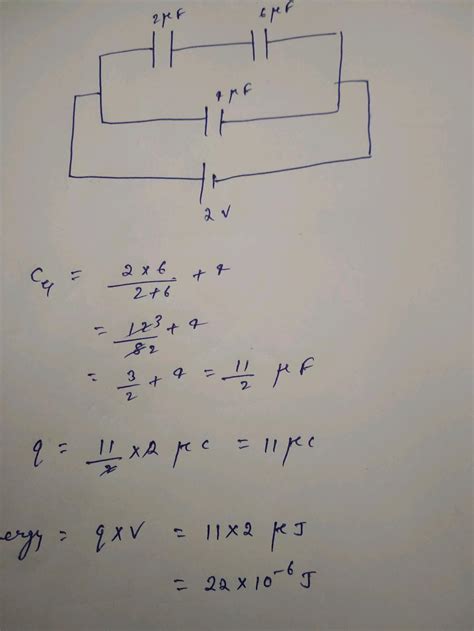 2μF 6μF
4μF
2V
Ceq = 2×6/2+6 + 4
= 12 3/8 2 + 4
= 3/2 + 4 = 11/2 μF
q = 11/2 ×2 μC = 11μC
ergy = q×V = 11×2 μJ
= 22×10⁻⁶ J